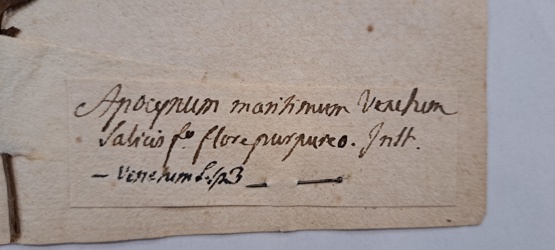 Apocynum maritimum Venetum
Salicis fo. flore purpureo. Instt.
– Venetum L. sp 3 –